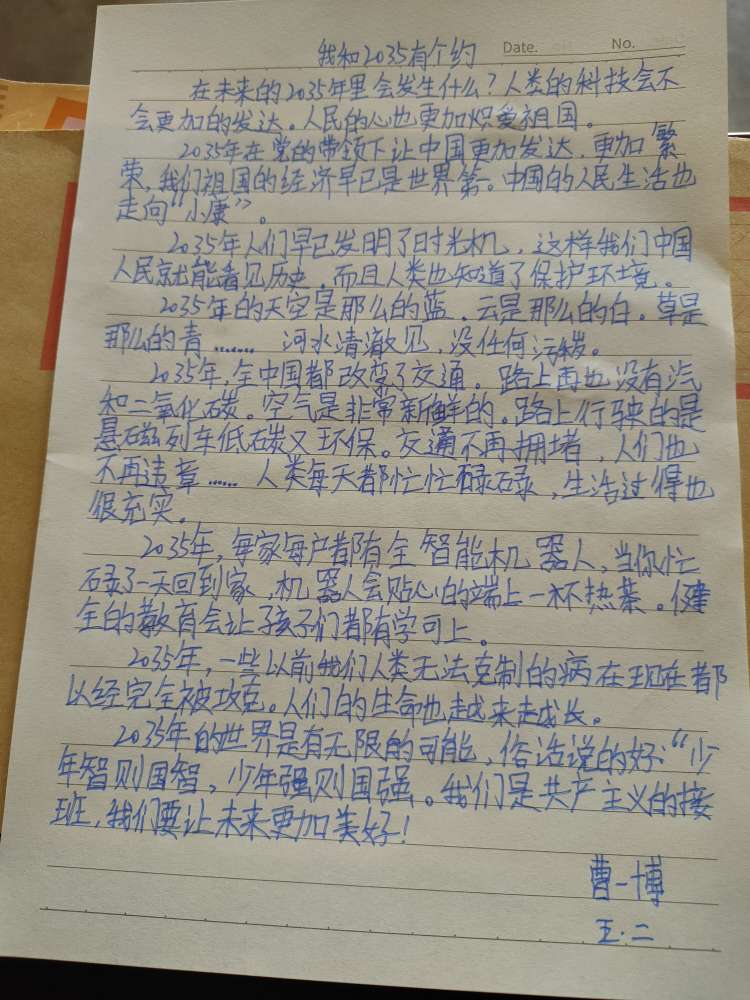 我和2035有个约
Date.
No.
在未来的2035年里会发生什么？人类的科技会不
会更加的发达。人民的心也更加炽爱祖国。
2035年在党的带领下让中国更加发达，更加繁
荣，我们祖国的经济早已是世界第。中国的人民生活也
走向“小康”。
2035年人们早已发明了时光机，这样我们中国
人民就能看见历史，而且人类也知道了保护环境。
2035年的天空是那么的蓝，云是那么的白。草是
那么的青…… 河水清澈见，没任何污秽。
2035年，全中国都改变了交通。路上再也没有汽
和二氧化碳。空气是非常新鲜的。路上行驶的是
悬磁列车低碳又环保。交通不再拥堵，人们也
不再违章…… 人类每天都忙忙碌碌，生活过得也
很充实。
2035年，每家每户都有全智能机器人，当你忙
碌了一天回到家，机器人会贴心的端上一杯热茶。健
全的教育会让孩子们都有学可上。
2035年，一些以前我们人类无法克制的病在现在都
以经完全被攻克。人们的生命也越来越长。
2035年的世界是有无限的可能，俗话说的好：“少
年智则国智，少年强则国强。我们是共产主义的接
班，我们要让未来更加美好！
曹一博
五·二